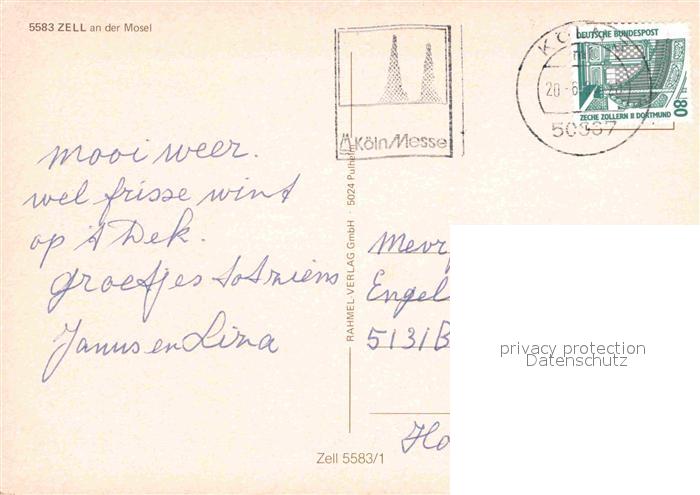 5583 ZELL an der Mosel
Köln/Messe
KÖLN
20.-6.
50667
DEUTSCHE BUNDESPOST
ZECHE ZOLLERN II DORTMUND
80
mooi weer.
wel frisse wint
op 't Dek.
groetjes tot ziens
Janus en Lina
RAHMEL-VERLAG GmbH · 5024 Pulheim
Mevr
Engel
5131 B
Ho
privacy protection
Datenschutz
Zell 5583/1